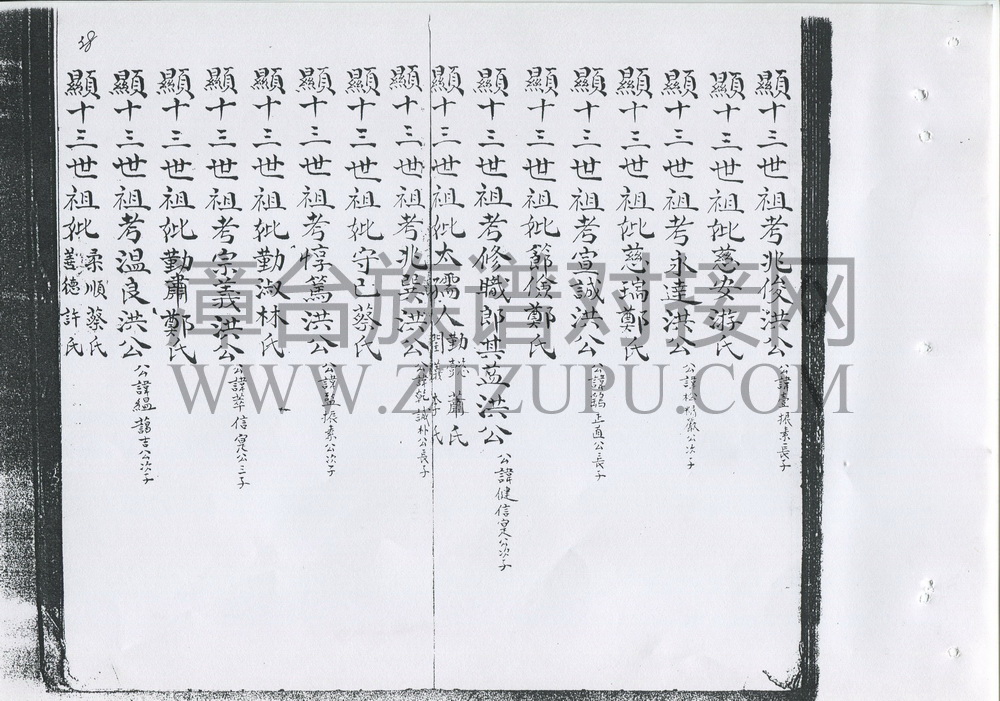 38
顯十三世祖考兆俊洪公
公諱 振素長子
顯十三世祖妣慈安游氏
顯十三世祖考永達洪公
公諱松 公次子
顯十三世祖妣慈瑞鄭氏
顯十三世祖考宣誠洪公
公諱 正直公長子
顯十三世祖妣節儉鄭氏
顯十三世祖考修職郎其藍洪公
公諱健信 公次子
顯十三世祖妣太孺人勤懿蕭氏 李氏
顯十三世祖考兆巽洪公
公諱乾誠朴公長子
顯十三世祖妣守己蔡氏
顯十三世祖考惇篤洪公
公諱 振素公次子
顯十三世祖妣勤淑林氏
顯十三世祖考宗義洪公
公諱萃信 公三子
顯十三世祖妣勤肅鄭氏
顯十三世祖考溫良洪公
公諱縕 吉公次子
顯十三世祖妣柔順蔡氏 善德許氏
章台族譜對接网
WWW.ZTZUPU.COM